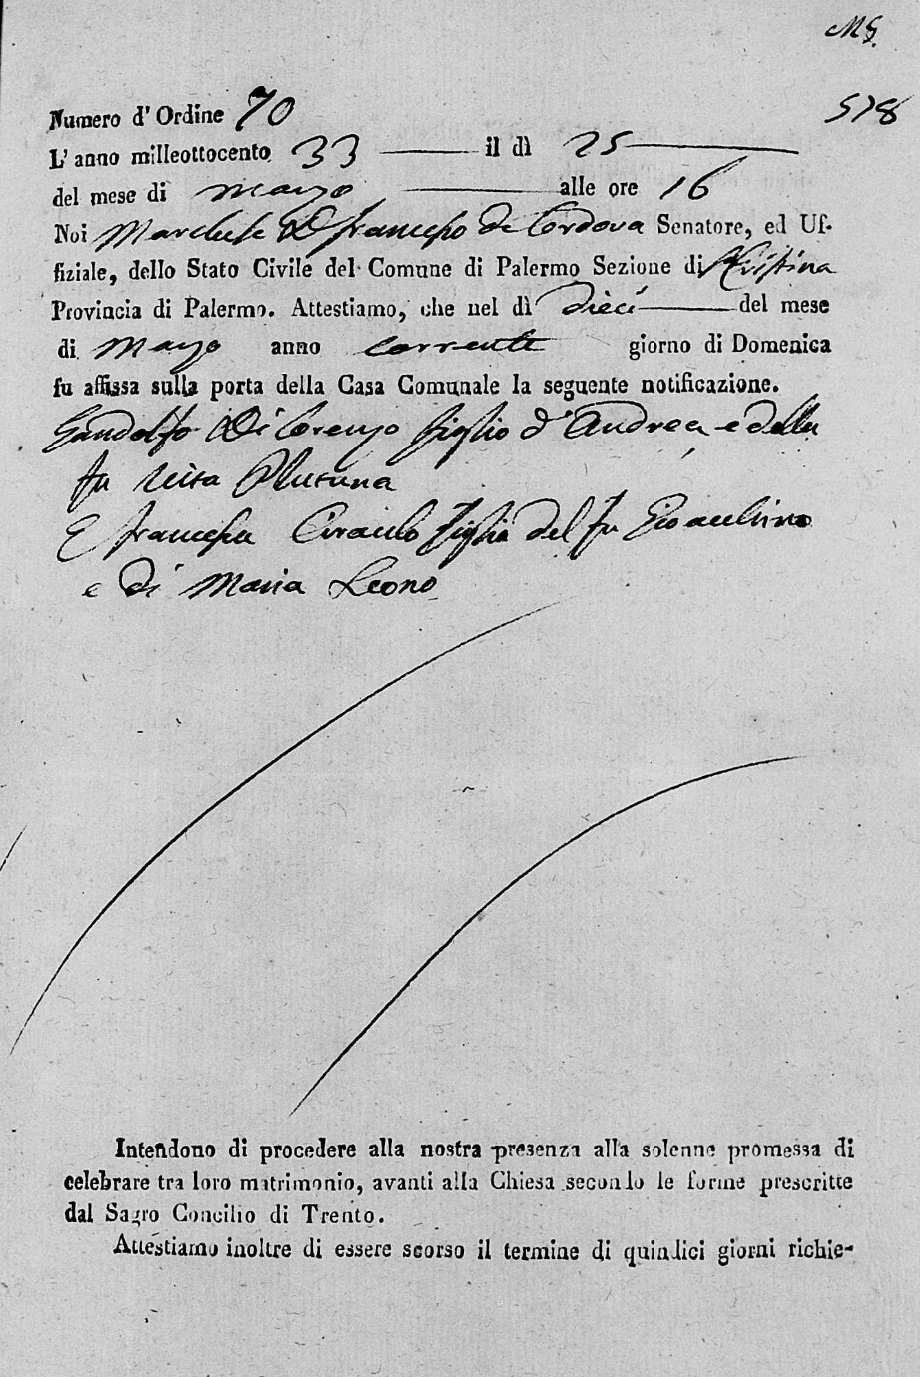 MS.
578
Numero d' Ordine 70
L' anno milleottocento 33 il dì 25
del mese di Marzo alle ore 16
Noi Marchese D. Francesco de Cordova Senatore, ed Uf-
fiziale, dello Stato Civile del Comune di Palermo Sezione di Cristina
Provincia di Palermo. Attestiamo, che nel dì dieci del mese
di Marzo anno corrente giorno di Domenica
fu affissa sulla porta della Casa Comunale la seguente notificazione.
Gandolfo Di Lorenzo figlio d' Andrea e della
fu Rita
E Francesca Ciraulo figlia del fu Gioacchino
e di Maria Leono
Intendono di procedere alla nostra presenza alla solenne promessa di
celebrare tra loro matrimonio, avanti alla Chiesa secondo le forme prescritte
dal Sagro Concilio di Trento.
Attestiamo inoltre di essere scorso il termine di quindici giorni richie-